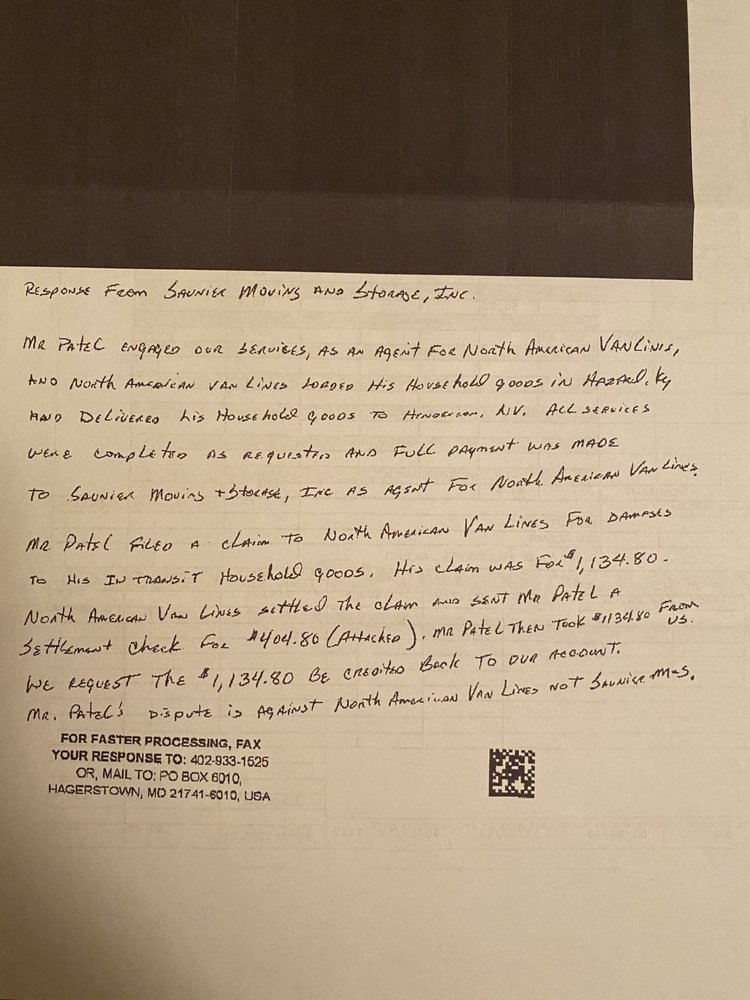 RESPONSE FROM SAUNIER MOVING AND STORAGE, INC.
MR PATEL ENGAGED OUR SERVICES, AS AN AGENT FOR NORTH AMERICAN VAN LINES,
AND NORTH AMERICAN VAN LINES LOADED HIS HOUSEHOLD GOODS IN HAZARD, KY
AND DELIVERED HIS HOUSEHOLD GOODS TO HENDERSON, NV. ALL SERVICES
WERE COMPLETED AS REQUESTED AND FULL PAYMENT WAS MADE
TO SAUNIER MOVING + STORAGE, INC AS AGENT FOR NORTH AMERICAN VAN LINES.
MR. PATEL FILED A CLAIM TO NORTH AMERICAN VAN LINES FOR DAMAGES
TO HIS IN TRANSIT HOUSEHOLD GOODS. HIS CLAIM WAS FOR $1,134.80.
NORTH AMERICAN VAN LINES SETTLED THE CLAIM AND SENT MR PATEL A
SETTLEMENT CHECK FOR $404.80 (ATTACHED). MR PATEL THEN TOOK $1134.80 FROM US.
WE REQUEST THE $1,134.80 BE CREDITED BACK TO OUR ACCOUNT.
MR. PATEL'S DISPUTE IS AGAINST NORTH AMERICAN VAN LINES NOT SAUNIER M+S.
FOR FASTER PROCESSING, FAX
YOUR RESPONSE TO: 402-933-1525
OR, MAIL TO: PO BOX 6010,
HAGERSTOWN, MD 21741-6010, USA